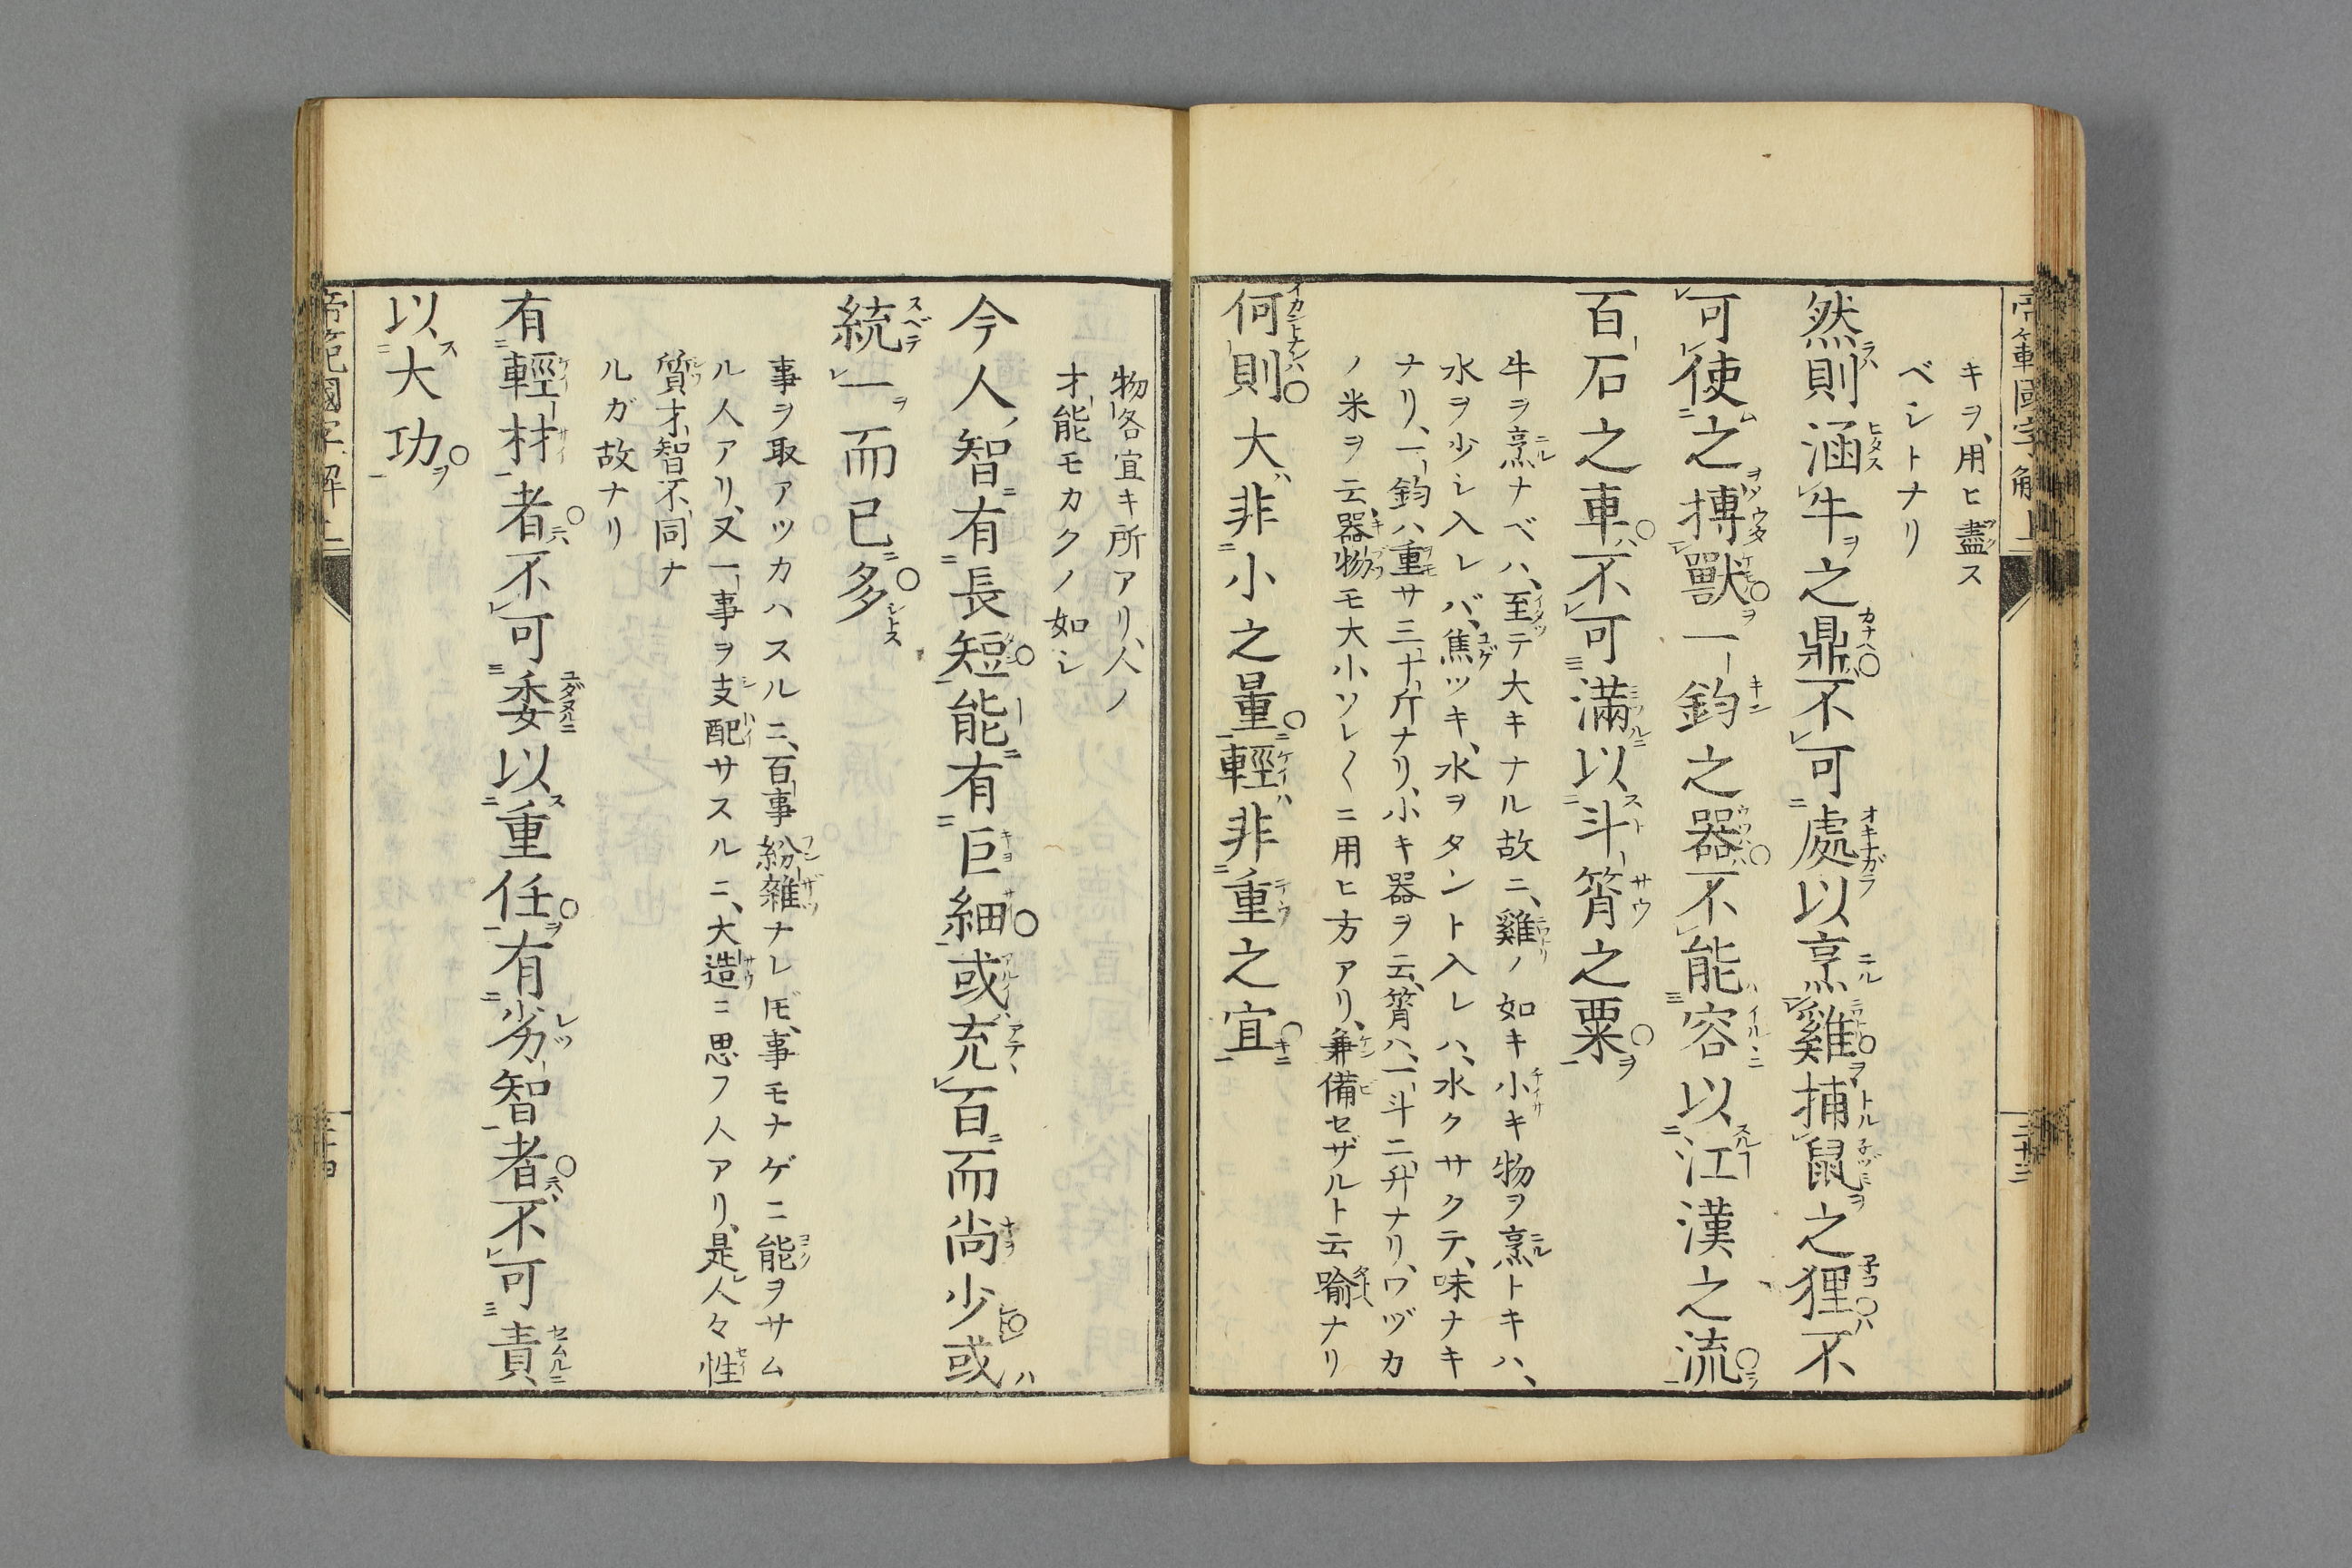 帝範國字解上
キヲ、用ヒ盡ス
ベシトナリ
然則涵牛之鼎不可處以烹雞捕鼠之狸不
可使之搏獸一鈞之器不能容以江漢之流
百石之車不可滿以斗筲之粟
牛ヲ烹ナベハ、至テ大キナル故ニ、雞ノ如キ小キ物ヲ烹トキハ、
水ヲ少シ入レバ、焦ツキ、水ヲタント入レハ、水クサクテ、味ナキ
ナリ、一鈞ハ重サ三十斤ナリ、小キ器ヲ云、筲ハ、一斗二升ナリ、ワヅカ
ノ米ヲ云、器物モ大小ソレ〱ニ用ヒ方アリ、兼備セザルト云喻ナリ
何則大非小之量輕非重之宜
三十三
物各宜キ所アリ、人ノ
才能モカクノ如シ
今人智有長短能有巨細或充百而尚少或
統一而已多
事ヲ取アツカハスルニ、百事紛雜ナレ𪜈、事モナゲニ能ヲサム
ル人アリ、又一事ヲ支配サスルニ、大造ニ思フ人アリ、是人々性
質才智不同ナ
ルガ故ナリ
有輕材者不可委以重任有劣智者不可責
以大功
帝範國字解上
三十四